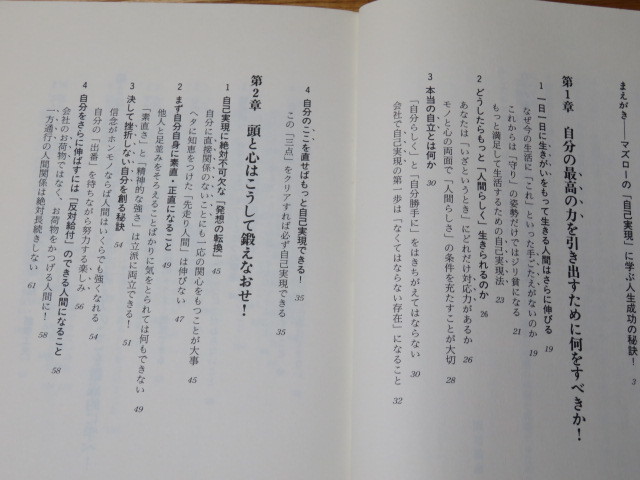 まえがき——マズローの「自己実現」に学ぶ人生成功の秘訣! 3
第1章 自分の最高の力を引き出すために何をすべきか!
1 一日一日に生きがいをもって生きる人間はさらに伸びる 19
なぜ今の生活に「これ」といった手ごたえがないのか 19
これからは「守り」の姿勢だけではジリ貧になる 21
もっと満足して生活するための自己実現法 23
2 どうしたらもっと「人間らしく」生きられるのか 26
あなたは「いざというとき」にどれだけ対応力があるか 26
モノと心の両面で「人間らしさ」の条件を充たすことが大切 28
3 本当の自立とは何か 30
「自分らしく」と「自分勝手に」をはきちがえてはならない 30
会社で自己実現の第一歩は「なくてはならない存在」になること 32
4 自分のここを直せばもっと自己実現できる! 35
この「三点」をクリアすれば必ず自己実現できる 35
第2章 頭と心はこうして鍛えなおせ!
1 自己実現に絶対不可欠な「発想の転換」 45
自分に直接関係のないことにも一応の関心をもつことが大事 45
ヘタに知恵をつけた「先走り人間」は伸びない 47
2 まず自分自身に素直・正直になること 49
他人と足並みをそろえることばかりに気をとられては何もできない 49
「素直さ」と「精神的な強さ」は立派に両立できる! 51
3 決して挫折しない自分を創る秘訣 54
信念がホンモノならば人間はいくらでも強くなれる 54
自分の「出番」を待ちながら努力する楽しみ 56
4 自分をさらに伸ばすには「反対給付」のできる人間になること 58
会社のお荷物ではなく、お荷物をかつげる人間に! 58
一方通行の人間関係は絶対長続きしない 61